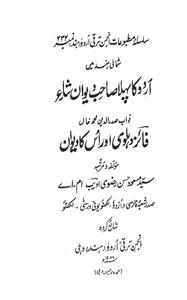 سلسلہ مطبوعات انجمن ترقی اردو (ہند) نمبر ۲۳۲
شمالی ہند میں
اُردو کا پہلا صاحبِ دیوان شاعر
نواب صدرالدین محمد خاں
فائز دہلوی اور اُس کا دیوان
مؤلفہ و مرتبہ
سید مسعود حسن رضوی ادیب ایم۔ اے
صدر شعبۂ فارسی و اردو، لکھنؤ یونی ورسٹی، لکھنؤ
شائع کردہ
انجمن ترقی اُردو (ہند) دہلی